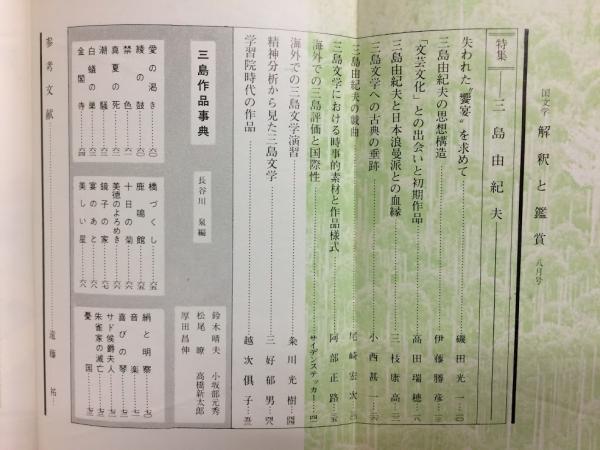 国文学 解釈と鑑賞 八月号
特集――三島由紀夫
失われた〝饗宴〟を求めて………磯田光一…一〇
三島由紀夫の思想構造………伊藤勝彦…一三
「文芸文化」との出会いと初期作品………高田瑞穂…一六
三島由紀夫と日本浪曼派との血縁………三枝康高…二一
三島文学への古典の垂跡………小西甚一…二六
三島由紀夫の戯曲………尾崎宏次…三〇
三島文学における時事的素材と作品様式………阿部正路…三五
海外での三島評価と国際性………サイデンステッカー…四一
海外での三島文学演習………粂川光樹…四四
精神分析から見た三島文学………三好郁男…四八
学習院時代の作品………越次倶子…五二
三島作品事典
長谷川 泉編
鈴木晴夫 小坂部元秀
松尾 瞭 高橋新太郎
厚田昌伸
愛の渇き…六〇
綾の鼓…六〇
禁色…六一
真夏の死…六二
潮騒…六三
白蟻の巣…六四
金閣寺…六四
橋づくし…六五
鹿鳴館…六五
十日の菊…六六
美徳のよろめき…六六
鏡子の家…六七
宴のあと…六八
美しい星…六八
絹と明察…七〇
音楽…七一
喜びの琴…七一
サド侯爵夫人…七二
朱雀家の滅亡…七三
憂国…七三
参考文献………遠藤 祐